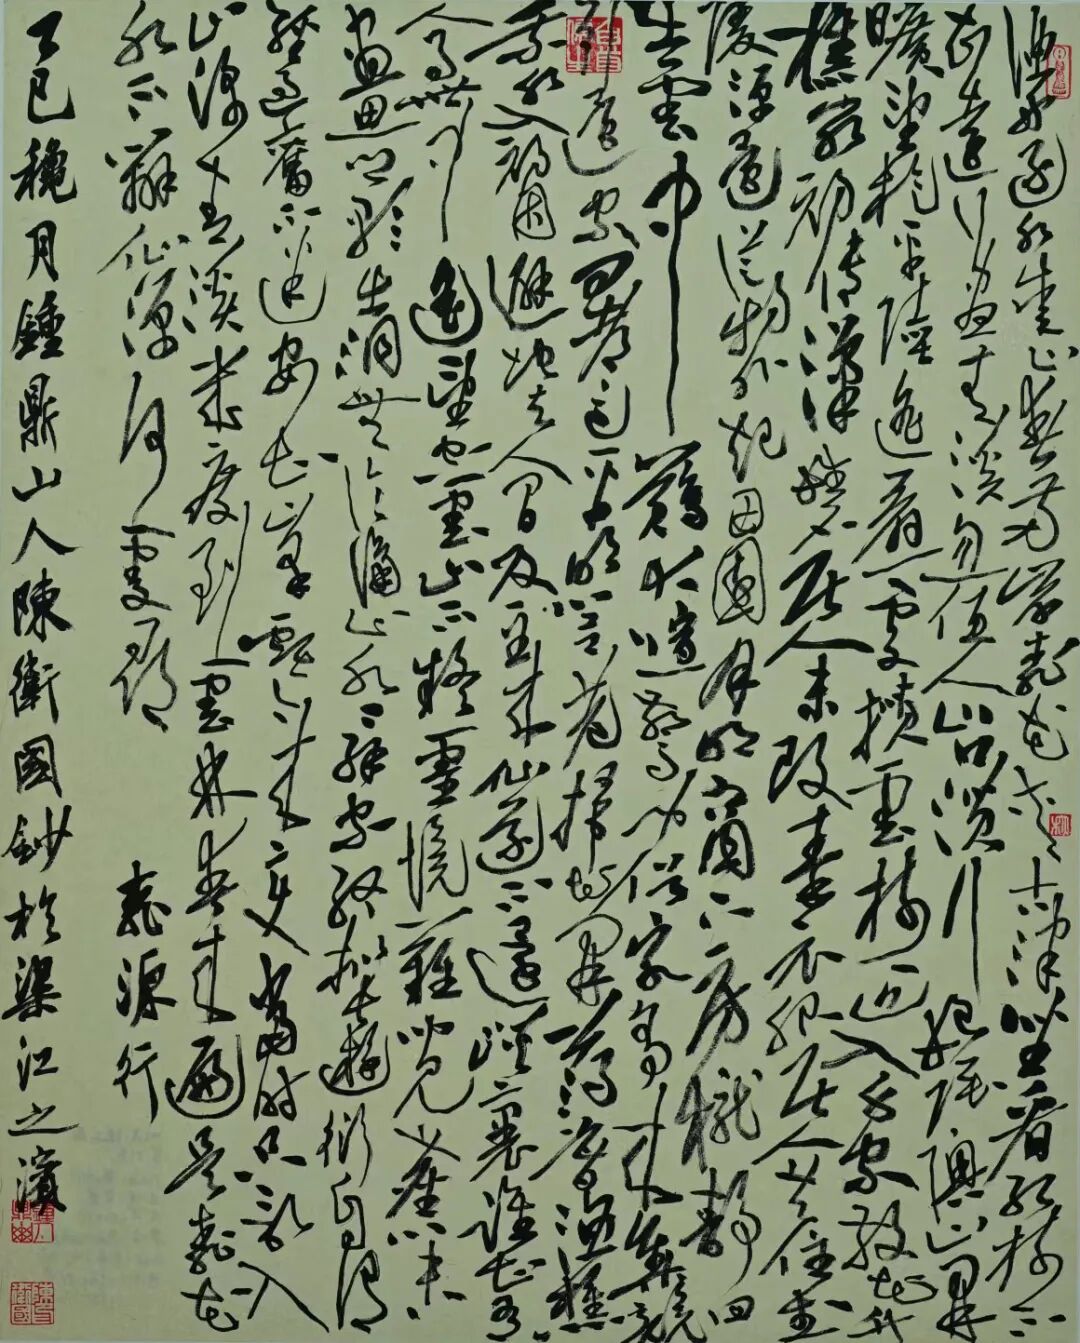 漁舟逐水愛山春兩岸桃花夾古津坐看紅樹不
知遠行盡青溪忽值人山口潛行始隈隩山開
曠望旋平陸遙看一處攢雲樹近入千家散花竹
樵客初傳漢姓名居人未改秦衣服居人共住武
陵源還從物外起田園月明松下房櫳靜日
出雲中雞犬喧驚聞俗客爭來集競
引還家問都邑平明閭巷掃花開薄暮漁樵
乘水入初因避地去人間及至成仙遂不還峽裏誰知有
人事世中遙望空雲山不疑靈境難聞見塵心未
盡思鄉縣出洞無論隔山水辭家終擬長遊衍自謂
經過舊不迷安知峰壑今來變當時只記入
山深青溪幾度到雲林春來遍是桃花
水不辨仙源何處尋 桃源行
乙巳穐月鍾鼎山人陳衛國鈔於渠江之濱